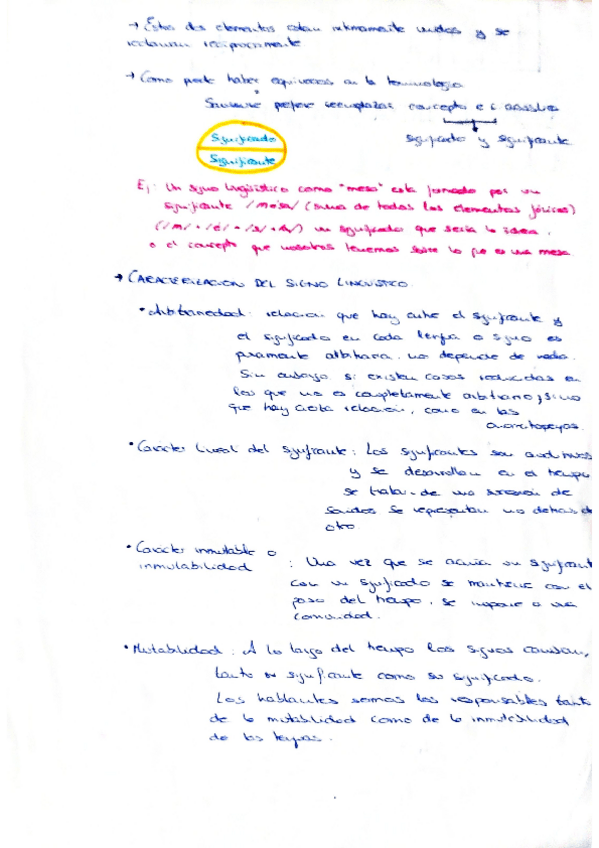 → Estos dos elementos están íntimamente unidos y se
reclaman recíprocamente
→ Como puede haber equívocos en la terminología
Saussure prefiere reemplazar concepto e i. acústica
significado y significante
Significado
Significante
Ej: Un signo lingüístico como "mesa" está formado por un
significante /mésa/ (suma de todos los elementos fónicos)
(/m/ + /é/ + /s/ + /a/) un significado que sería la idea,
o el concepto que nosotros tenemos sobre lo que es una mesa
→ CARACTERIZACION DEL SIGNO LINGÜISTICO
• Arbitrariedad: relación que hay entre el significante y
el significado en cada lengua o signo es
puramente arbitraria. no depende de nada.
Sin embargo si existen casos reducidos en
los que no es completamente arbitrario, sino
que hay cierta relación, como en las
onomatopeyas.
• Carácter lineal del significante: Los significantes son auditivos
y se desarrollan en el tiempo
se trata de una sucesión de
sonidos se representan uno detrás de
otro
• Carácter inmutable o
inmutabilidad
: Una vez que se acuña un significante
con un significado se mantiene con el
paso del tiempo, se impone a una
comunidad.
• Mutabilidad: A lo largo del tiempo los signos cambian,
tanto su significante como su significado.
Los hablantes somos los responsables tanto
de la mutabilidad como de la inmutabilidad
de las lenguas.